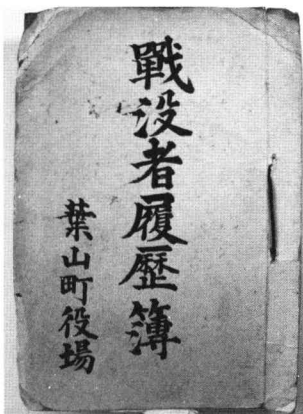 戰没者履歴簿
葉山町役場